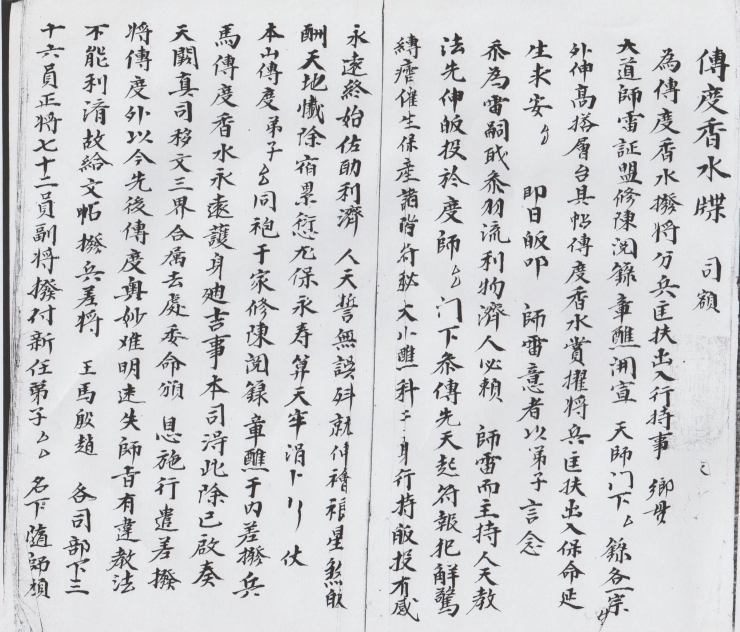 傳度香水牒 司額
為傳度香水撥將分兵匡扶出入行持事 鄉貫
大道師雷証盟修陳閱籙章醮開宣 天師门下厶 籙各一宗
外伸髙搭層台具帖傳度香水賞擢將兵匡扶出入保命延
生求安厶 即日皈叩 師雷意者以弟子 言念
忝為雷嗣戝忝羽流利物濟人必賴 師雷而主持人天教
法先伸皈投於度師厶 门下忝傳先天起符報犯解驚
縛瘧催生保產諸階符秘大小醮科 身行持皈投有感
永遠終始佐助利濟 人天誓無誤 就伸禬禳星煞皈
酬天地懴除宿累愆尤保永寿算天牢涓卜 伏
本山傳度弟子厶同袍于家修陳閱籙章醮于內差撥兵
馬傳度香水永遠護身迪吉事本司淂此除已啟奏
天闕真司移文三界合属去處委命頒 恩施行遣差撥
將傳度外以今先後傳度奥妙难明迷失師旨有違教法
不能利濟故給文帖撥兵差將 王馬殷趙 各司部下三
十六員正将七十二員副将撥付新任弟子厶厶 名下隨師領